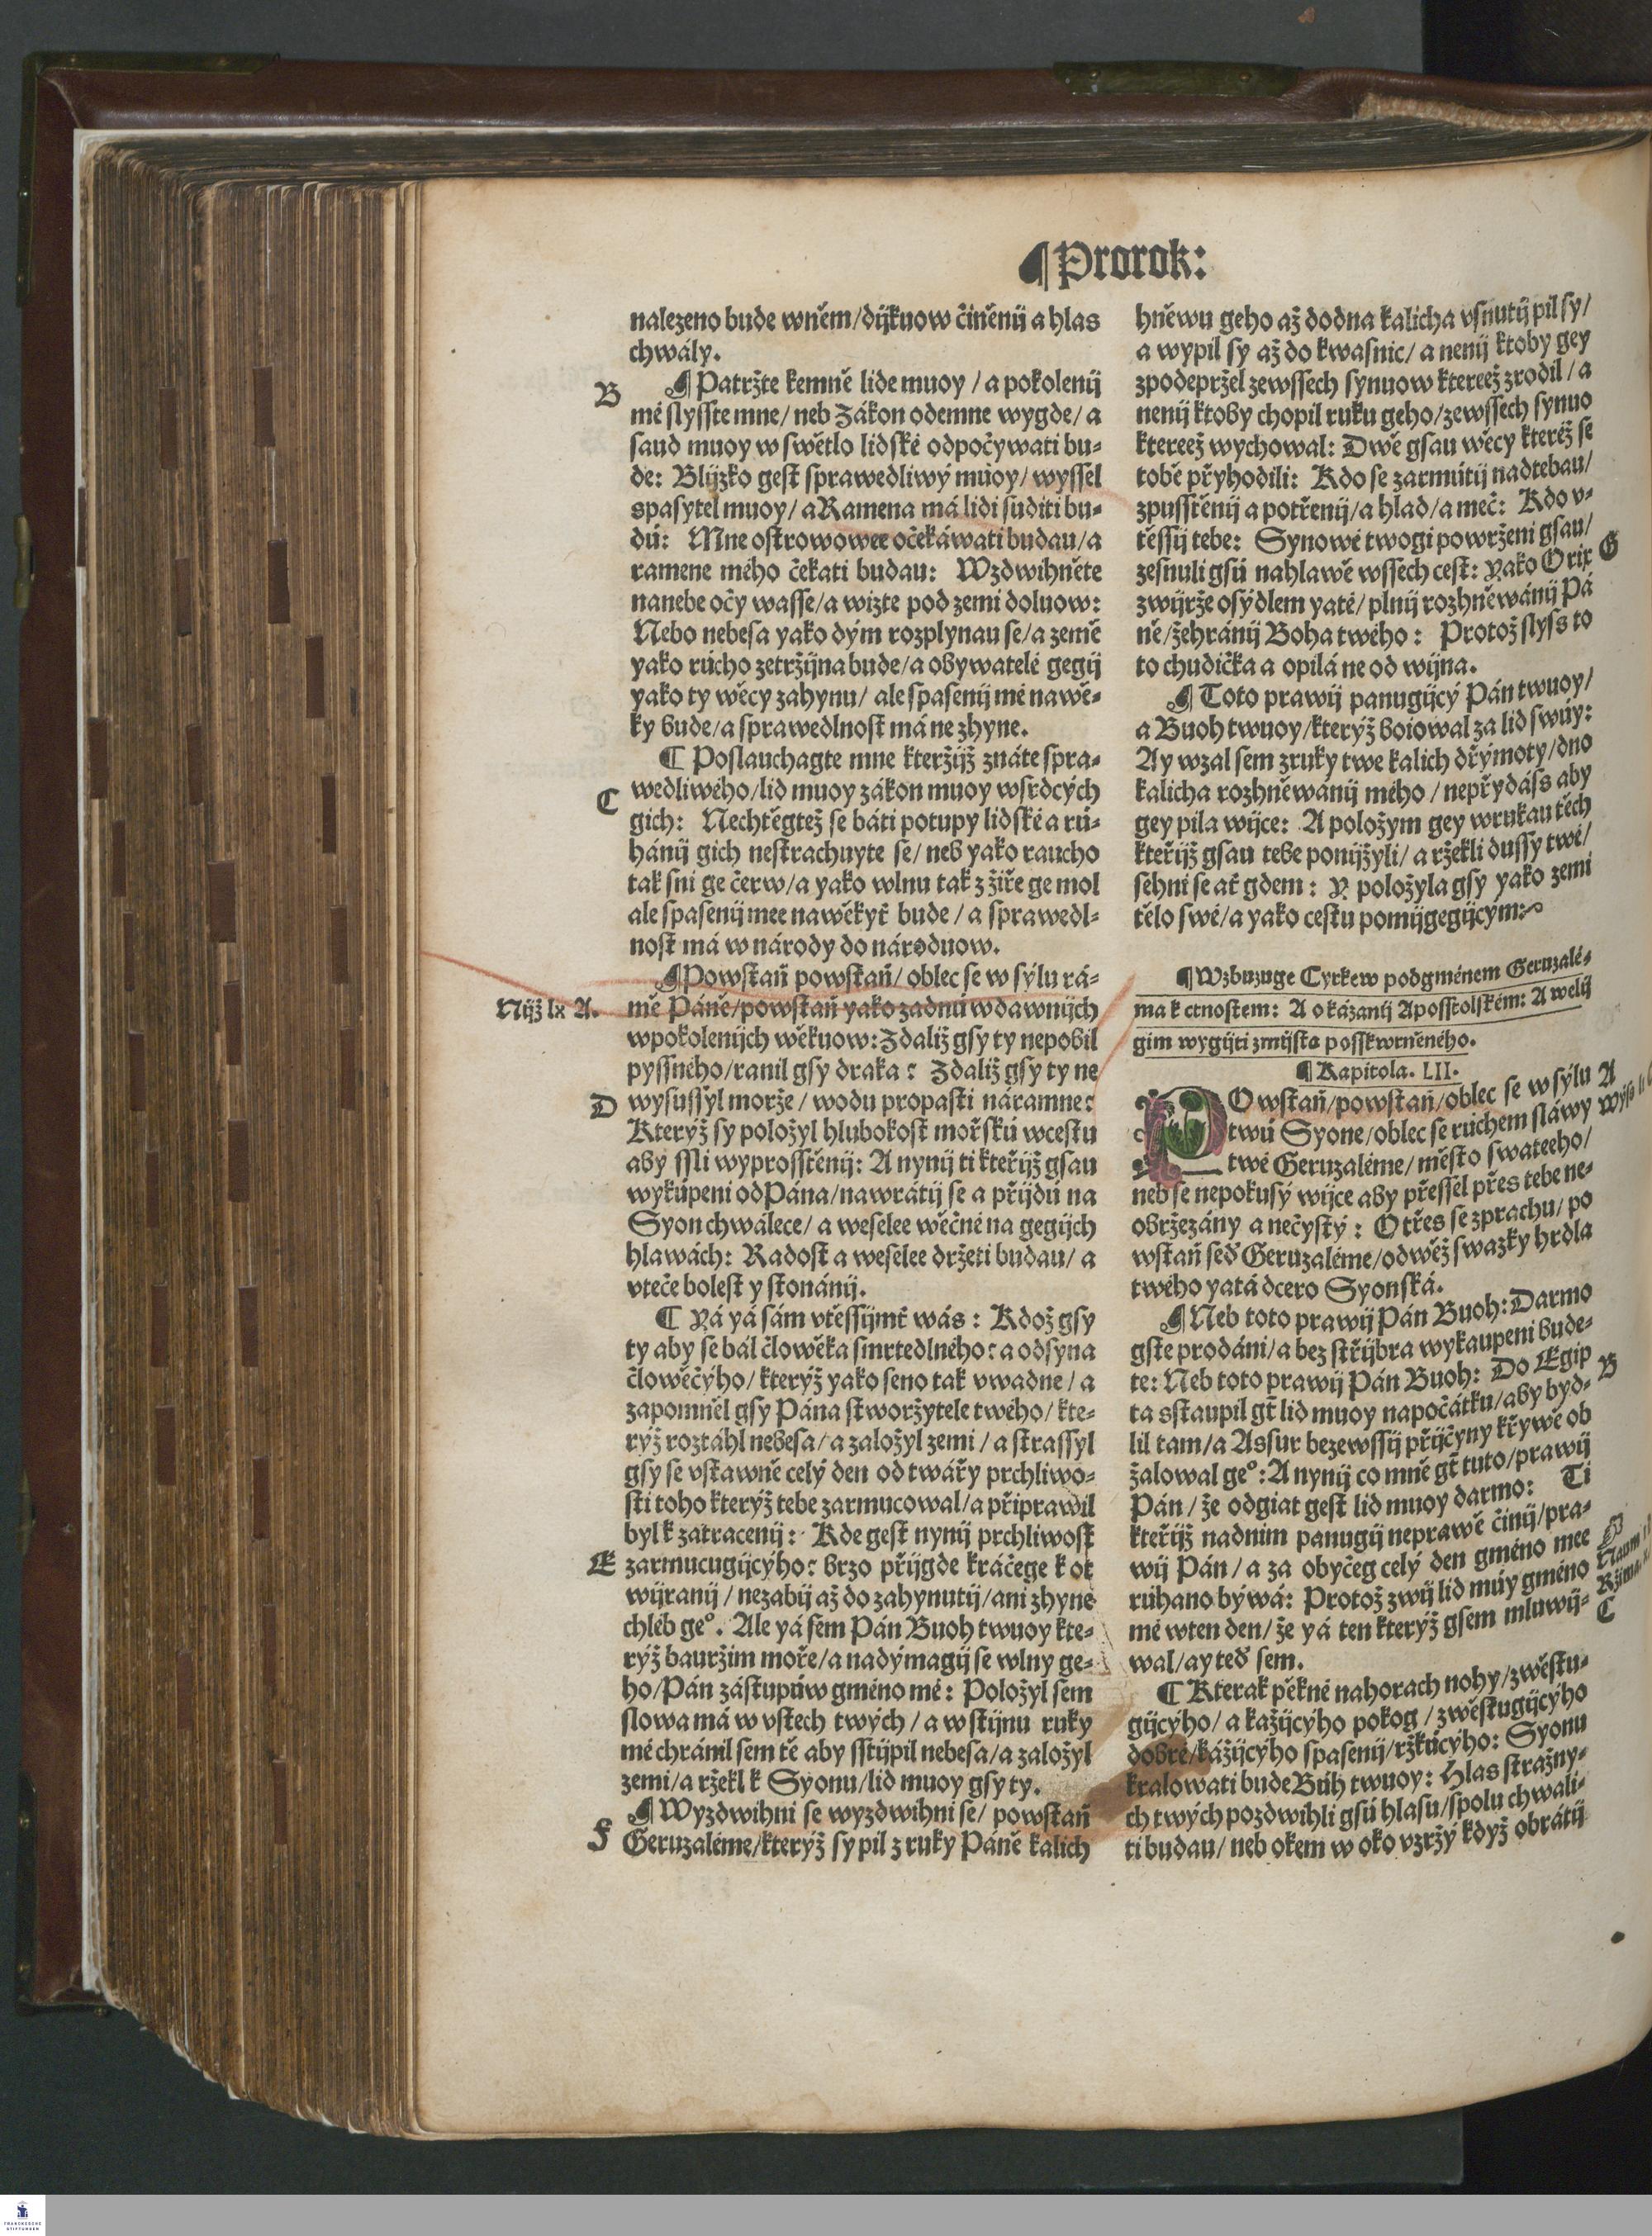 ¶Prorok:
nalezeno bude wněm/dijkuow činěnij a hlas
chwály.
B
¶Patržte kemně lide muoy / a pokolenij
mé slysste mne/ neb Zákon odemne wygde/ a
saud muoy w swětlo lidské odpočywati bu-
de: Blijzko gest sprawedliwý múoy/ wyssel
spasytel muoy/ a Ramena má lidi súditi bu-
dú: Mne ostrowowee očekáwati budau/a
ramene mého čekati budau: Wzdwihněte
nanebe očy wasse/a wizte pod zemi doluow:
Nebo nebesa yako dým rozplynau se/a země
yako rúcho zetržijna bude/a obywatelé gegij
yako ty wěcy zahynu/ ale spasenij mé nawě-
ky bude/a sprawedlnost má ne zhyne.
¶ Poslauchagte mne kteržijž znáte spra-
C
wedliwého/lid muoy zákon muoy wsrdcých
gich: Nechtěgtež se báti potupy lidské a rú-
hánij gich nestrachuyte se/ neb yako raucho
tak sni ge čerw/a yako wlnu tak z žiře ge mol
ale spasenij mee nawěkyť bude / a sprawedl-
nost má w národy do národuow.
¶Powstaň powstaň/ oblec se w sýlu rá-
Nijž lx A.
mě Páně/powstaň yako zadnú wdawnijch
wpokolenijch wěkuow: Zdaliž gsy ty nepobil
pyssného/ranil gsy draka: Zdaliž gsy ty ne
D
wysussyl morže / wodu propasti náramne:
Kterýž sy položyl hlubokost mořskú wcestu
aby ssli wyprosstěnij: A nynij ti kteřijž gsau
wykúpeni od Pána/nawrátij se a přijdú na
Syon chwálece/ a weselee wěčné na gegijch
hlawách: Radost a weselee držeti budau/ a
vteče bolest y stonánij.
¶ Yá yá sám vtěssijmť wás: Kdož gsy
ty aby se bál člowěka smrtedlného: a od syna
člowěčýho/ kterýž yako seno tak vwadne/ a
zapomněl gsy Pána stworžytele twého/ kte-
rýž roztáhl nebesa/ a založyl zemi / a strassyl
gsy se vstawně celý den od twářy prchliwo-
sti toho kterýž tebe zarmucowal/a připrawil
byl k zatracenij: Kde gest nynij prchliwost
E
zarmucugijcýho: brzo přijgde kráčege k ot
wijranij / nezabij až do zahynutij/ani zhyne
chléb geº. Ale yá sem Pán Buoh twuoy kte-
rýž bauržim moře/a nadýmagij se wlny ge-
ho/Pán zástupúw gméno mé: Položyl sem
slowa má w vstech twých / a w stijnu ruky
mé chránil sem tě aby sstijpil nebesa/a založyl
zemi/a ržekl k Syonu/lid muoy gsy ty.
¶Wyzdwihni se wyzdwihni se/ powstaň
F
Geruzaléme/kterýž sy pil z ruky Páně kalich
hněwu geho až dodna kalicha vsnutij pil sy/
a wypil sy až do kwasnic/ a nenij ktoby gey
zpodepržel zewssech synuow ktereež zrodil / a
nenij ktoby chopil ruku geho/zewssech synuo
ktereež wychowal: Dwě gsau wěcy kteréž se
tobě přyhodili: Kdo se zarmútij nadtebau/
zpusstěnij a potřenij/a hlad/a meč: Kdo v-
těssij tebe: Synowé twogi powrženi gsau/
G
zesnuli gsú nahlawě wssech cest: yako Orix
zwijrže osýdlem yaté/ plnij rozhněwánij Pá
ně/žehránij Boha twého: Protož slyss to
to chudička a opilá ne od wijna.
¶Toto prawij panugijcý Pán twuoy/
a Buoh twuoy/kterýž boiowal za lid swúy:
Ay wzal sem z ruky twe kalich dřýmoty/dno
kalicha rozhněwánij mého / nepřydáss aby
gey pila wijce: A položym gey wrukau těch
kteřijž gsau tebe ponijžyli/ a ržekli dussy twé/
sehni se ať gdem: Y položyla gsy yako zemi
tělo swé/a yako cestu pomijgegijcým:
¶Wzbuzuge Cyrkew podgménem Geruzalé-
ma k ctnostem: A o kázanij Aposstolském: A welij
gim wygijti zmijsta posskwrněného.
¶Kapitola. LII.
POwstaň/powstaň/oblec se w sýlu
A
twú Syone/oblec se rúchem sláwy
twé Geruzaléme/ město swateeho/
neb se nepokusý wijce aby přessel přes tebe ne-
obržezány a nečystý: Otřes se zprachu/ po
wstaň seď Geruzaléme/odwěž swazky hrdla
twého yatá dcero Syonská.
¶Neb toto prawij Pán Buoh: Darmo
gste prodáni/a bez střijbra wykaupeni bude-
te: Neb toto prawij Pán Buoh: Do Egip
B
ta sstaupil gť lid muoy napočátku/aby byd-
lil tam/a Assur bezewssij přijčyny křywě ob
žalowal geº: A nynij co mně gť tuto/prawij
Pán/ že odgiat gest lid muoy darmo: Ti
kteřijž nadnim panugij neprawě činij/pra-
wij Pán/ a za obyčeg celý den gméno mee
rúhano býwá: Protož zwij lid múy gméno
mé wten den/ že yá ten kterýž gsem mluwij-
C
wal/ay teď sem.
¶ Kterak pěkné nahorach nohy/zwěstu-
gijcýho/ a kažijcýho pokog / zwěstugijcýho
dobré/kážijcýho spasenij/ržkúcýho: Syonu
kralowati bude Bůh twuoy: Hlas strážny-
ch twých pozdwihli gsú hlasu/spolu chwali-
ti budau/ neb okem w oko vzržý když obrátij
FRANCKESCHE
STIFTUNGEN